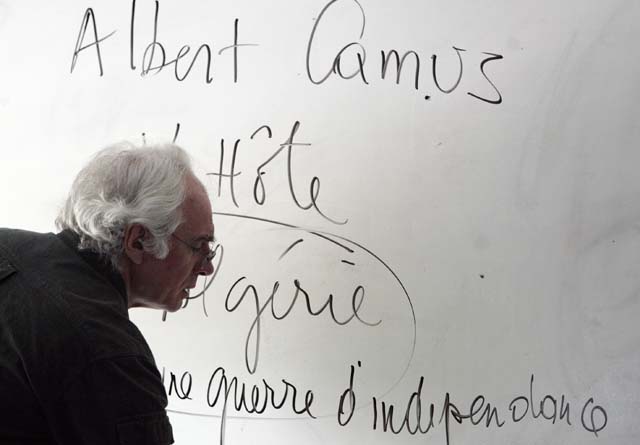 Albert Camus
l'Hôte
Algérie
une guerre d'indépendance